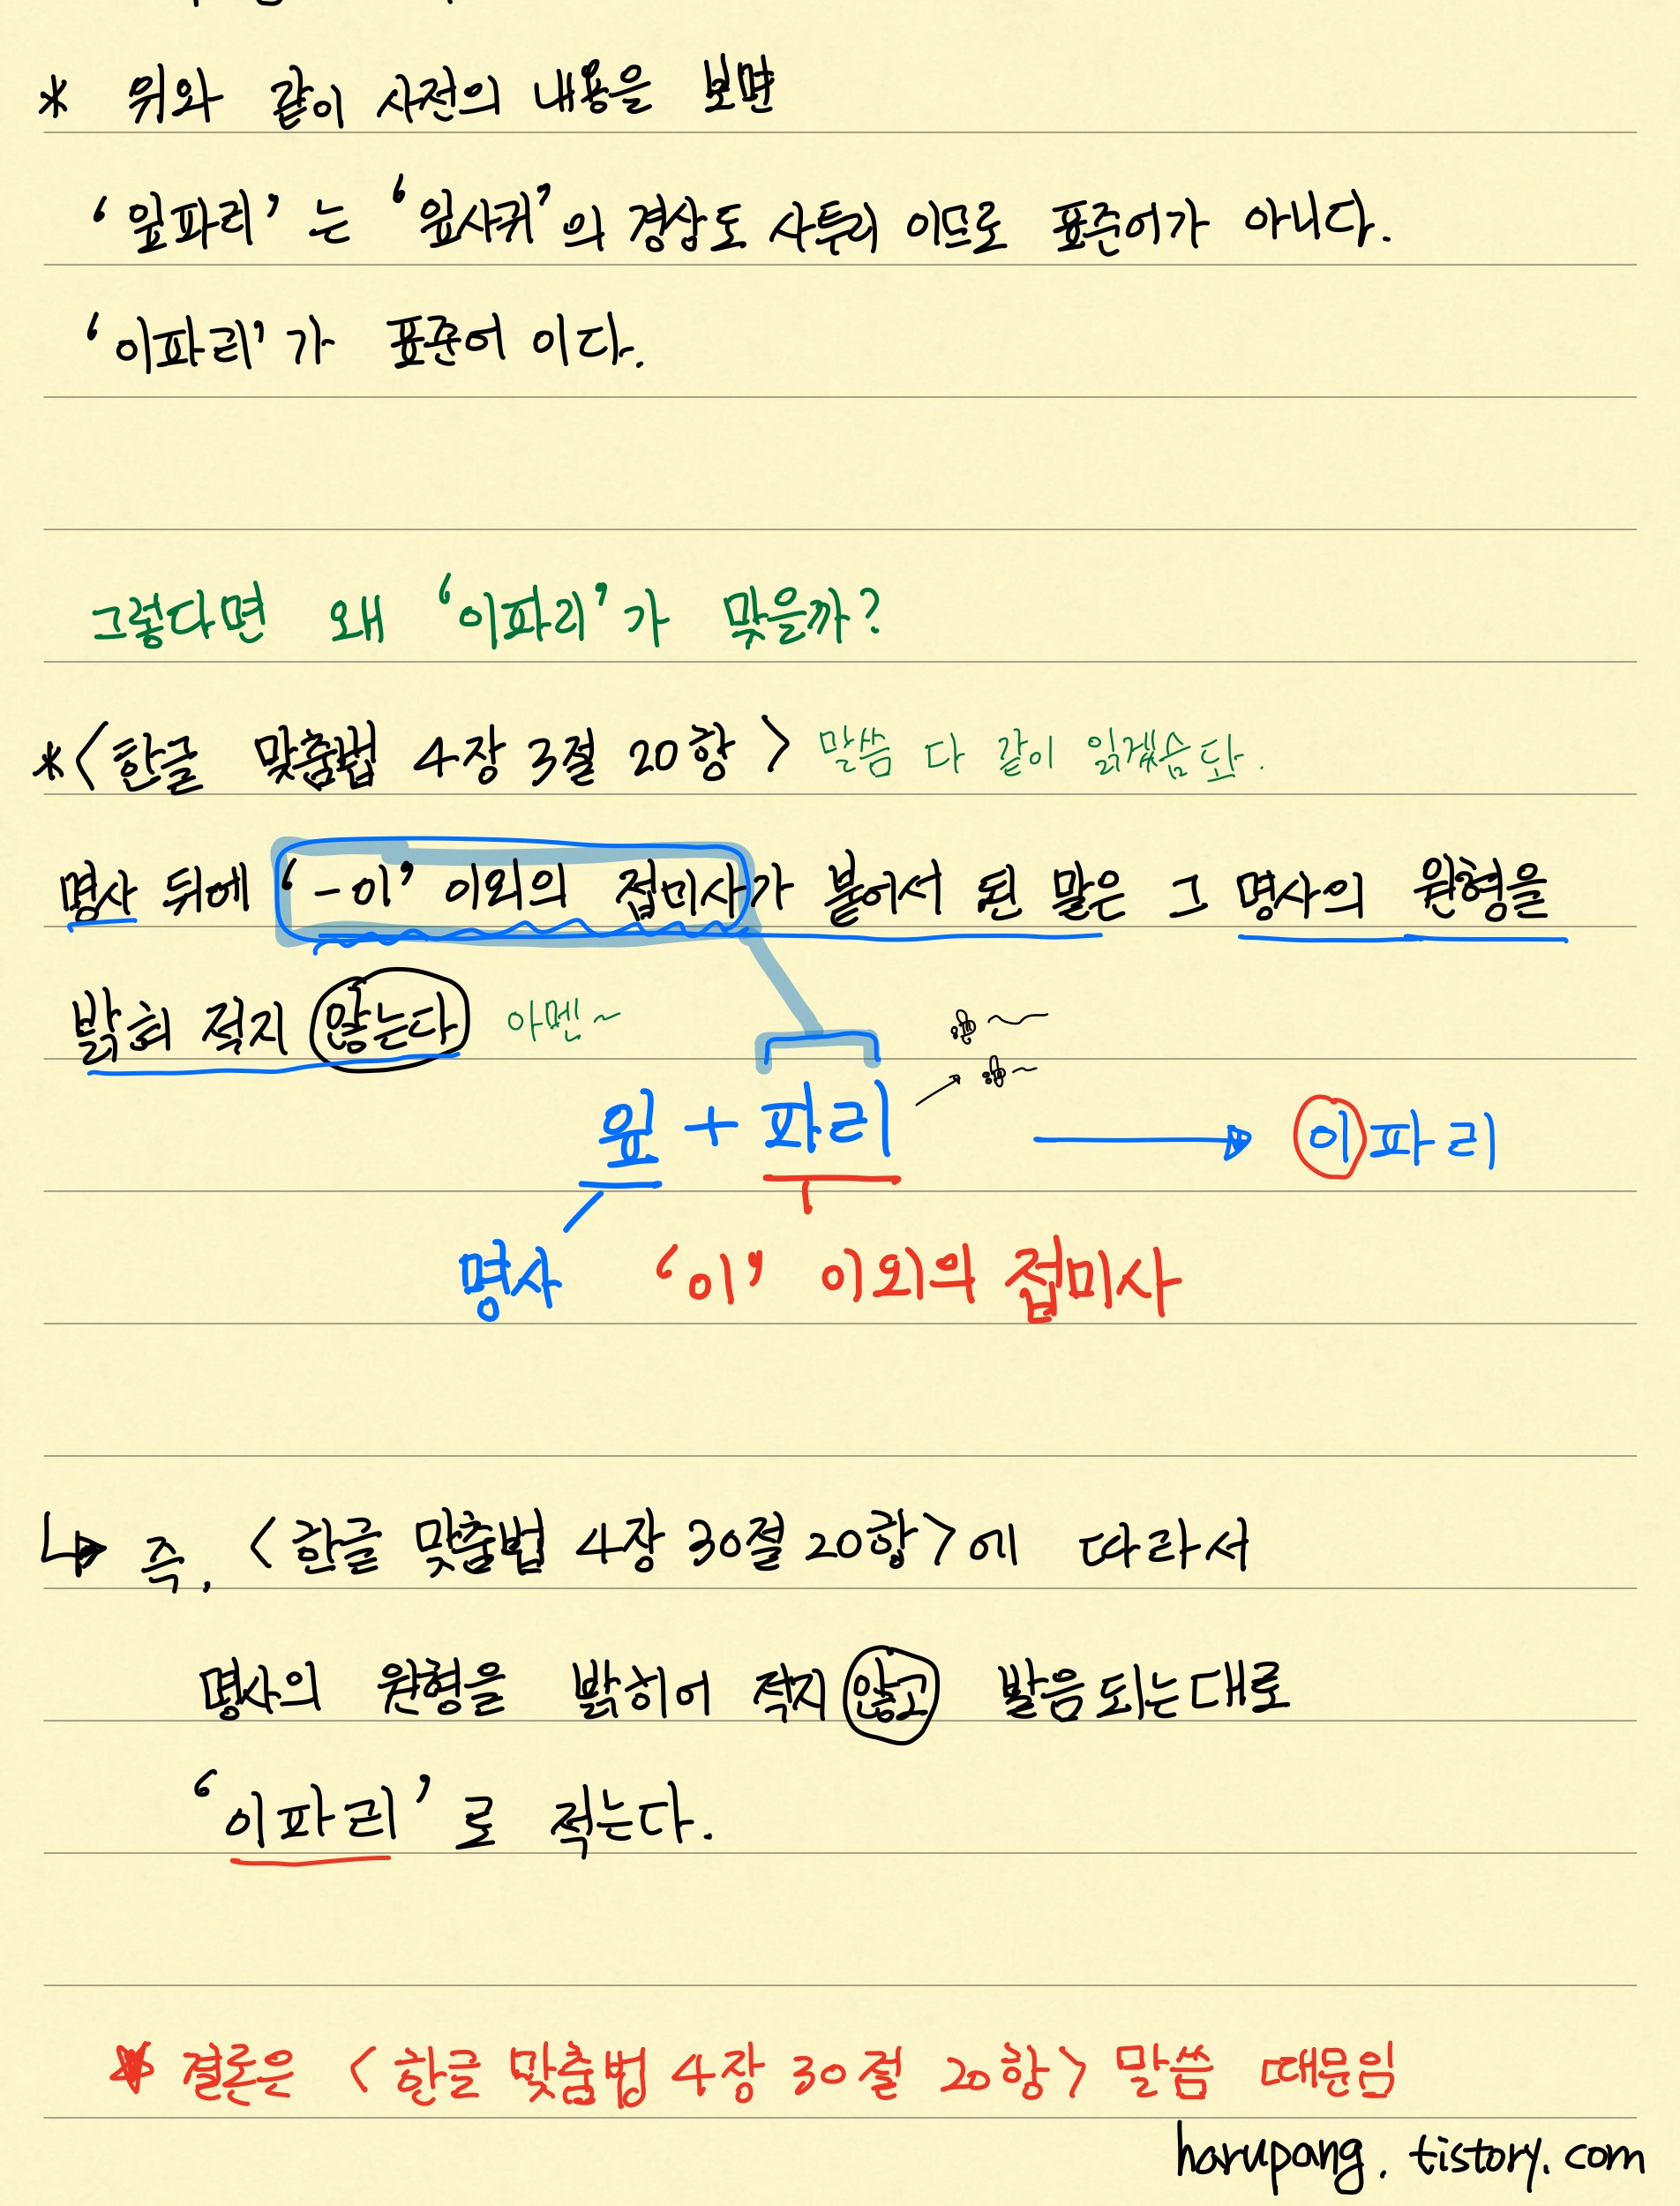 * 위와 같이 사전의 내용을 보면
‘잎파리’는 ‘잎사귀’의 경상도 사투리 이므로 표준어가 아니다.
‘이파리’가 표준어 이다.
그렇다면 왜 ‘이파리’가 맞을까?
*<한글 맞춤법 4장 3절 20항> 말씀 다 같이 읽겠습돠.
명사 뒤에 ‘-이’ 이외의 접미사가 붙어서 된 말은 그 명사의 원형을
밝히 적지 않는다 아멘~
잎 + 파리 → 이파리
명사 ‘이’ 이외의 접미사
↳ 즉, <한글 맞춤법 4장 30절 20항>에 따라서
명사의 원형을 밝히어 적지 않고 발음되는대로
‘이파리’로 적는다.
* 결론은 <한글 맞춤법 4장 30절 20항> 말씀 때문임
harupang.tistory.com